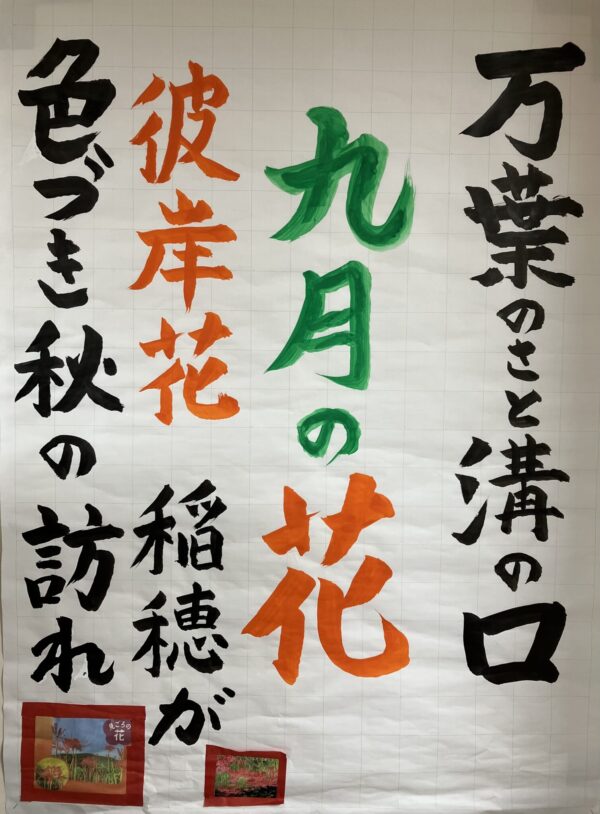 万葉のさと溝の口
九月の花
彼岸花 稲穂が
色づき秋の訪れ
見ごろの
花